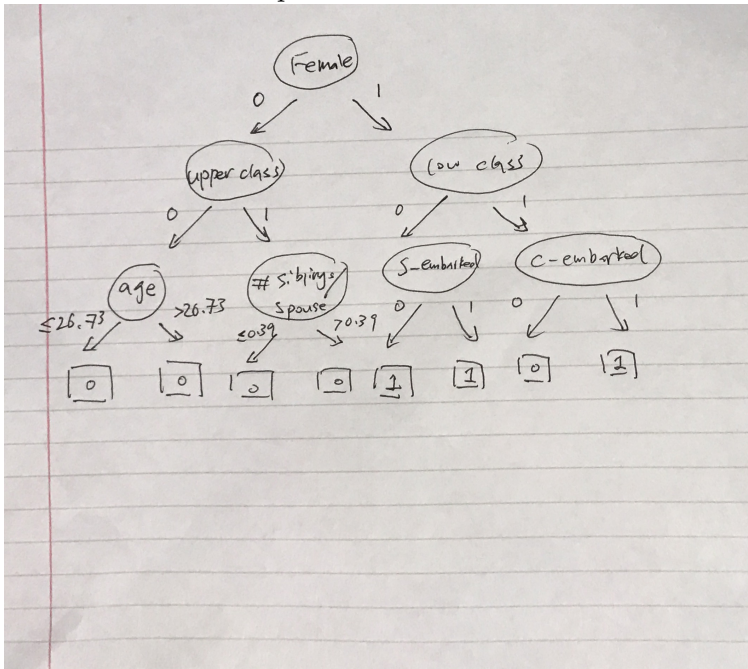 Female
0 1
upper class low class
0 1 0 1
age # Siblings/ S-embarked C-embarked
spouse
≤26.73 >26.73 ≤0.39 >0.39 0 1 0 1
0 0 0 0 1 1 0 1